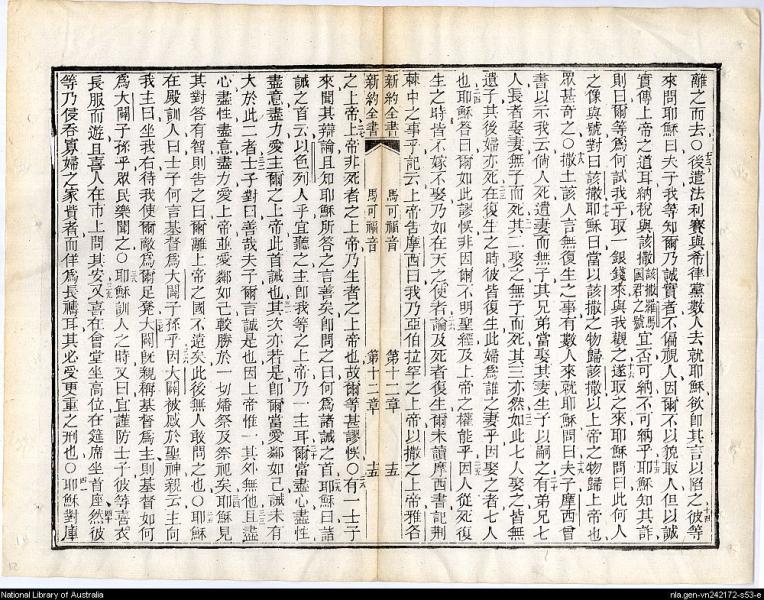 離之而去〇後遣法利賽與希律黨數人去就耶穌欲即其言以陷之彼等
來問耶穌曰夫子我等知爾乃誠實者不偏視人因爾不以貌取人但以誠
實傳上帝之道耳納稅與該撒該撒羅馬國君之號宜否可納不可納乎耶穌知其詐
則曰爾等為何試我乎取一銀錢來與我觀之遂取之來耶穌問曰此何人
之像與號對曰該撒耶穌曰當以該撒之物歸該撒以上帝之物歸上帝也
眾甚奇之〇撒土該人言無復生之事有數人來就耶穌問曰夫子摩西曾
書以示我云倘人死遺妻而無子其兄弟當娶其妻生子以嗣之有弟兄七
人長者娶妻無子而死其二娶之無子而死其三亦然如此七人娶之皆無
遺子其後婦亦死在復生之時彼皆復生此婦為誰之妻乎因娶之者七人
也耶穌答曰爾如此謬悞非因爾不明聖經及上帝之權能乎因人從死復
生之時皆不嫁不娶乃如在天之使者論及死者復生爾未讀摩西書記荆
棘中之事乎記云上帝告摩西曰我乃亞伯拉罕之上帝以撒之上帝雅各
新約全書 馬可福音 第十二章 十五
新約全書 馬可福音 第十二章 十五
之上帝上帝非死者之上帝乃生者之上帝也故爾等甚謬悞〇有一士子
來聞其辯論且知耶穌所答之言善矣即問之曰何為諸誡之首耶穌曰諸
誡之首云以色列人乎宜聽之主即我等之上帝乃一主耳爾當盡心盡性
盡意盡力愛主爾之上帝此首誡也其次亦若是即爾當愛鄰如己誡未有
大於此二者士子對曰善哉夫子爾言誠是也因上帝惟一其外無他且盡
心盡性盡意盡力愛上帝並愛鄰如己較勝於一切燔祭及祭祀矣耶穌見
其對答有智則告之曰爾離上帝之國不遠矣此後無人敢問之也〇耶穌
在殿訓人曰士子何言基督為大闢子孫乎因大闢被感於聖神親云主向
我主曰坐我右待我使爾敵為爾足凳大闢既親稱基督為主則基督如何
為大闢子孫乎眾民樂聞之〇耶穌訓人之時又曰宜謹防士子彼等喜衣
長服而遊且喜人在市上問其安又喜在會堂坐高位在筵席坐首座然彼
等乃侵吞寡婦之家貲者而佯為長禱耳其必受更重之刑也〇耶穌對庫
National Library of Australia
nla.gen-vn242172-s53-e